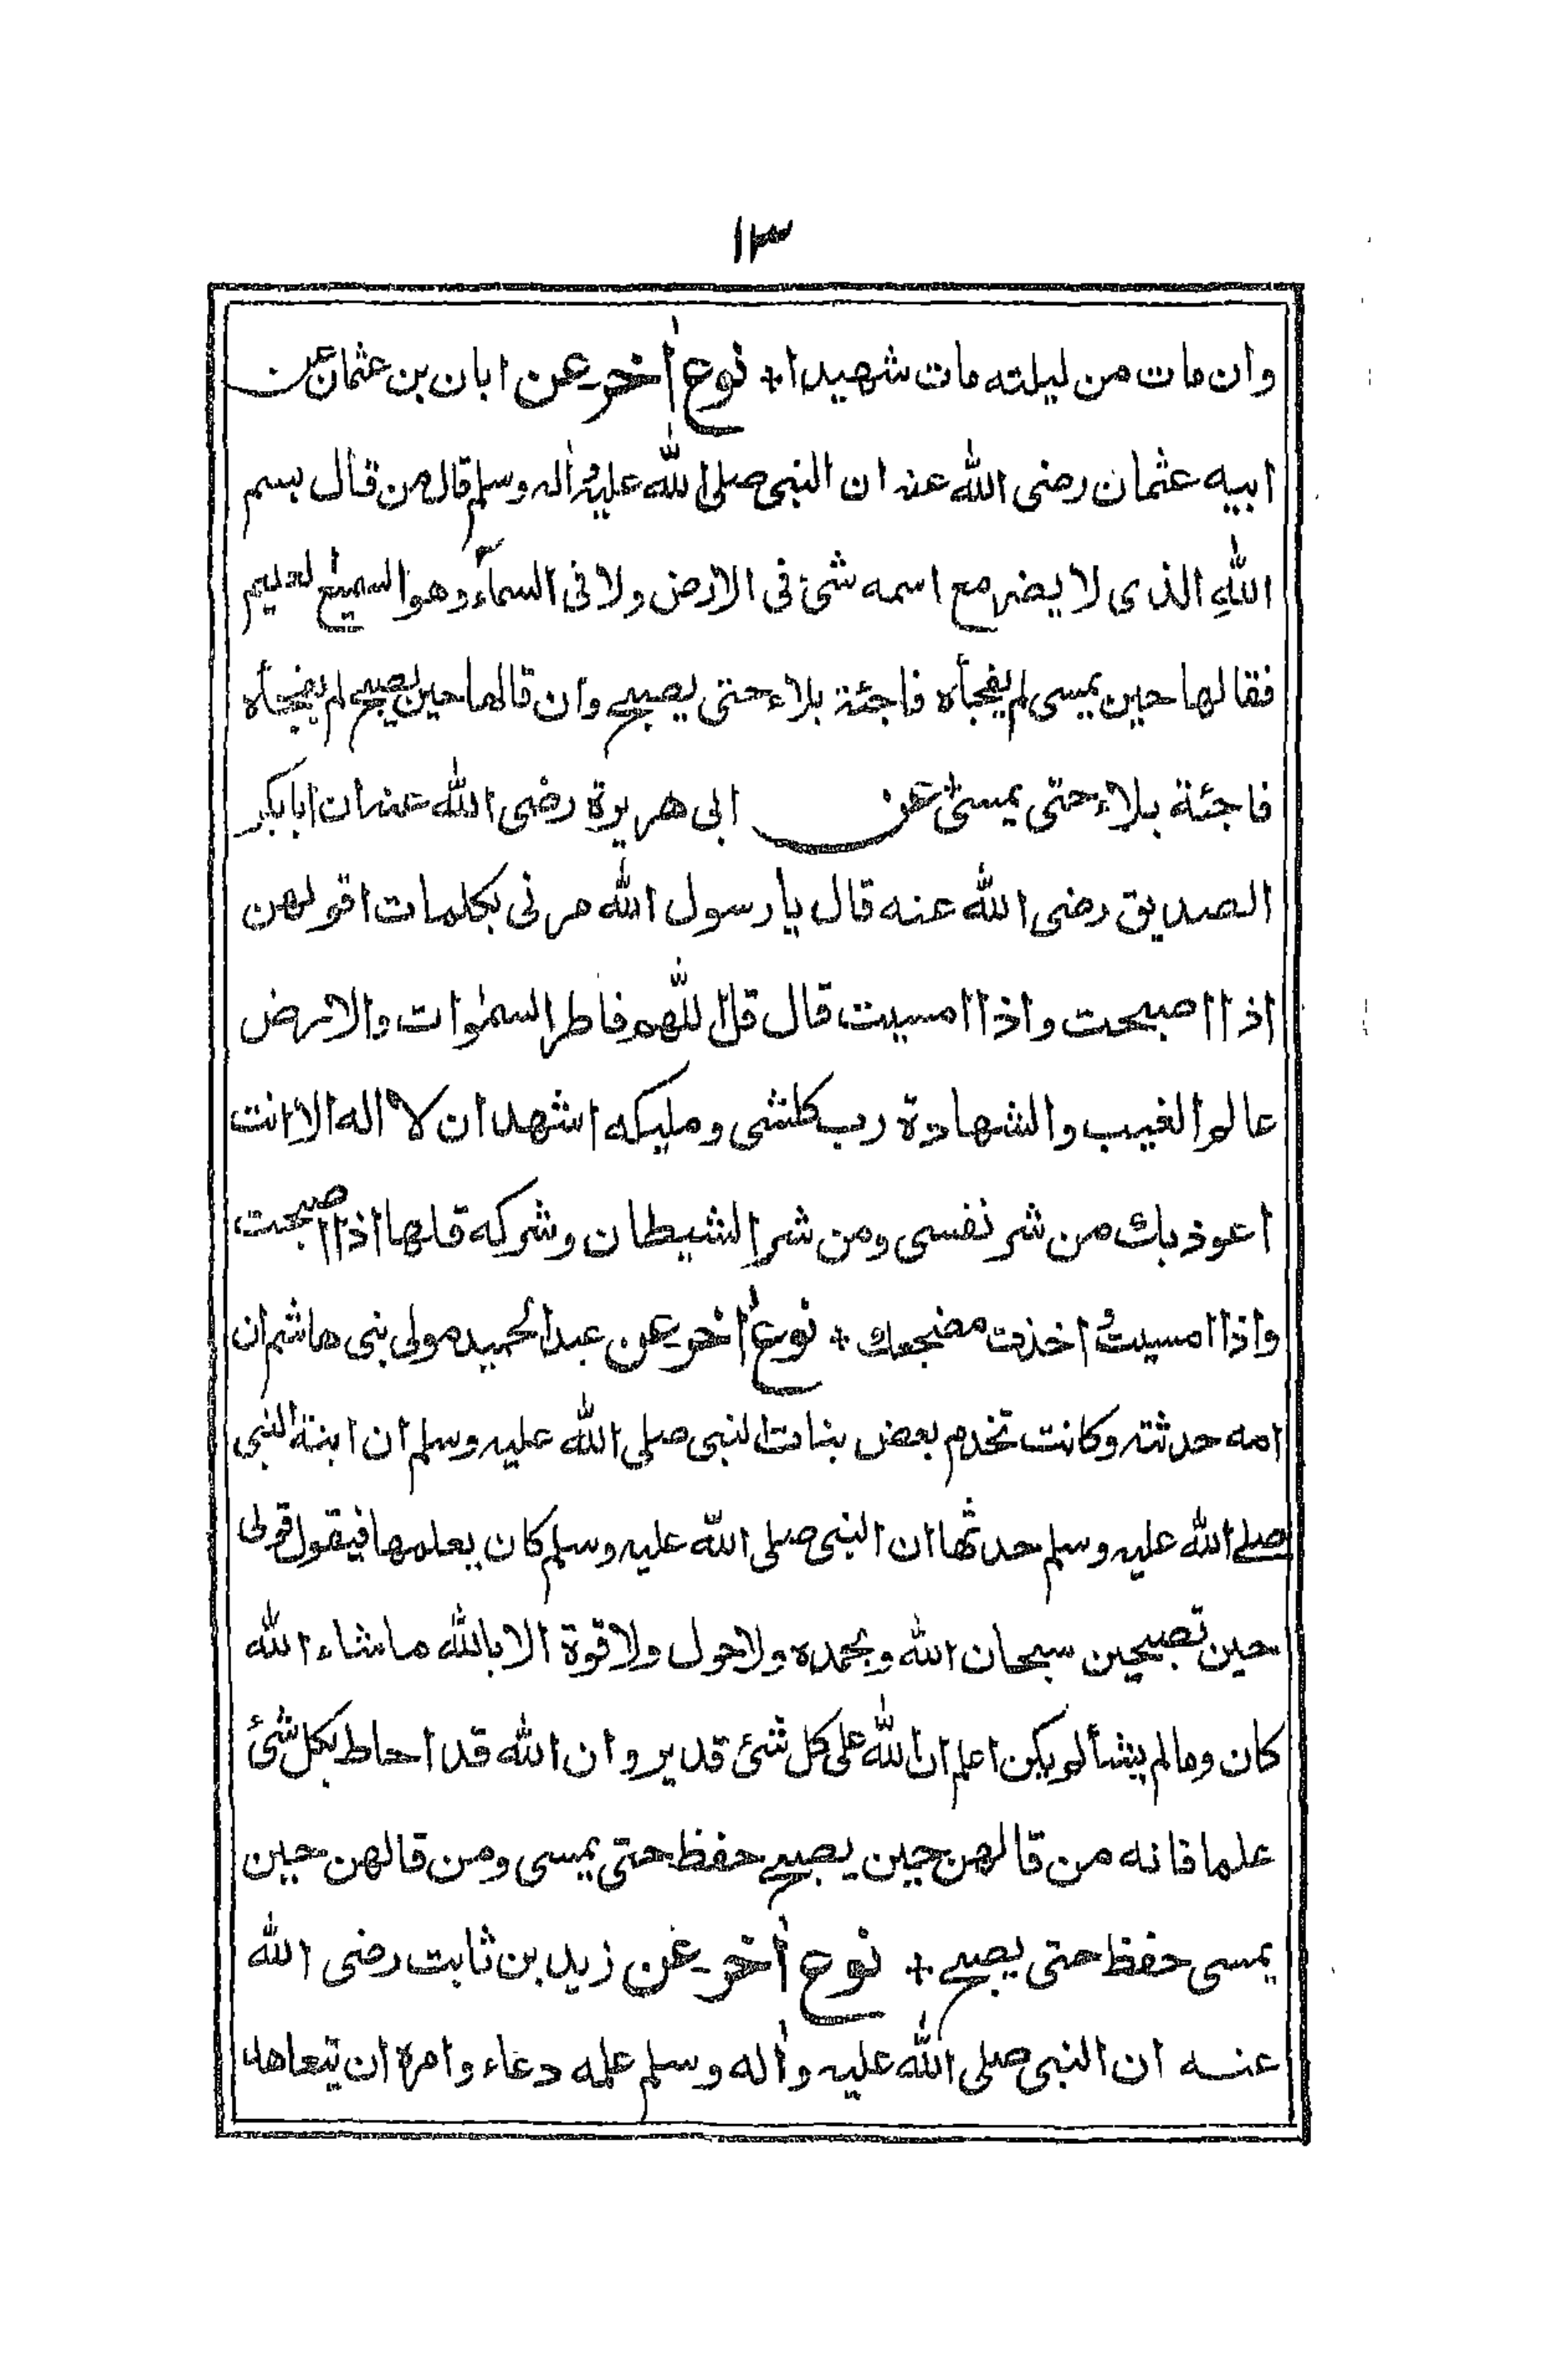 ١٣
وان مات من ليلته مات شهيدا + نوع أخر عن ابان بن عثمان عن
ابيه عثمان رضى الله عنه ان النبى صلى الله عليه واٰله وسلم قال من قال بسم
اللهِ الذى لا يضر مع اسمه شئ فى الارض ولا فى السمآء وهو السميع العليم
فقالها حين يمسى لم يفجأه فاجئة بلاء حتى يصبح وان قالها حين يصبح لم يفجأه
فاجئة بلاء حتى يمسى عن ابى هريرة رضى الله عنه ان ابابكر
الصديق رضى الله عنه قال يا رسول الله مرنى بكلمات اقولهن
اذا اصبحت واذا امسيت قال قل اللّٰهم فاطر السمٰوات والارض
عالم الغيب والشهادة رب كلشى ومليكه اشهد ان لا اله الا انت
اعوذ بك من شر نفسى ومن شر الشيطان وشركه قلها اذا اصبحت
واذا امسيت و اخذت مضجعك + نوع أخر عن عبد الحميد مولى بنى هاشم ان
امه حدثته وكانت تخدم بعض بنات النبى صلى الله عليه وسلم ان ابنة النبى
صلے الله عليه وسلم حدثتها ان النبى صلى الله عليه وسلم كان يعلمها فيقول قولى
حين تصبحين سبحان الله وبحمده ولا حول ولا قوة الا بالله ماشاء الله
كان وما لم يشأ لم يكن اعلم ان الله على كل شئ قدير وان الله قد احاط بكل شئ
علما فانه من قالهن حين يصبح حفظ حتى يمسى ومن قالهن حين
يمسى حفظ حتى يصبح + نوع أخر عن زيد بن ثابت رضى الله
عنه ان النبى صلى الله عليه واٰله وسلم علمه دعاء وامره ان يتعاهد